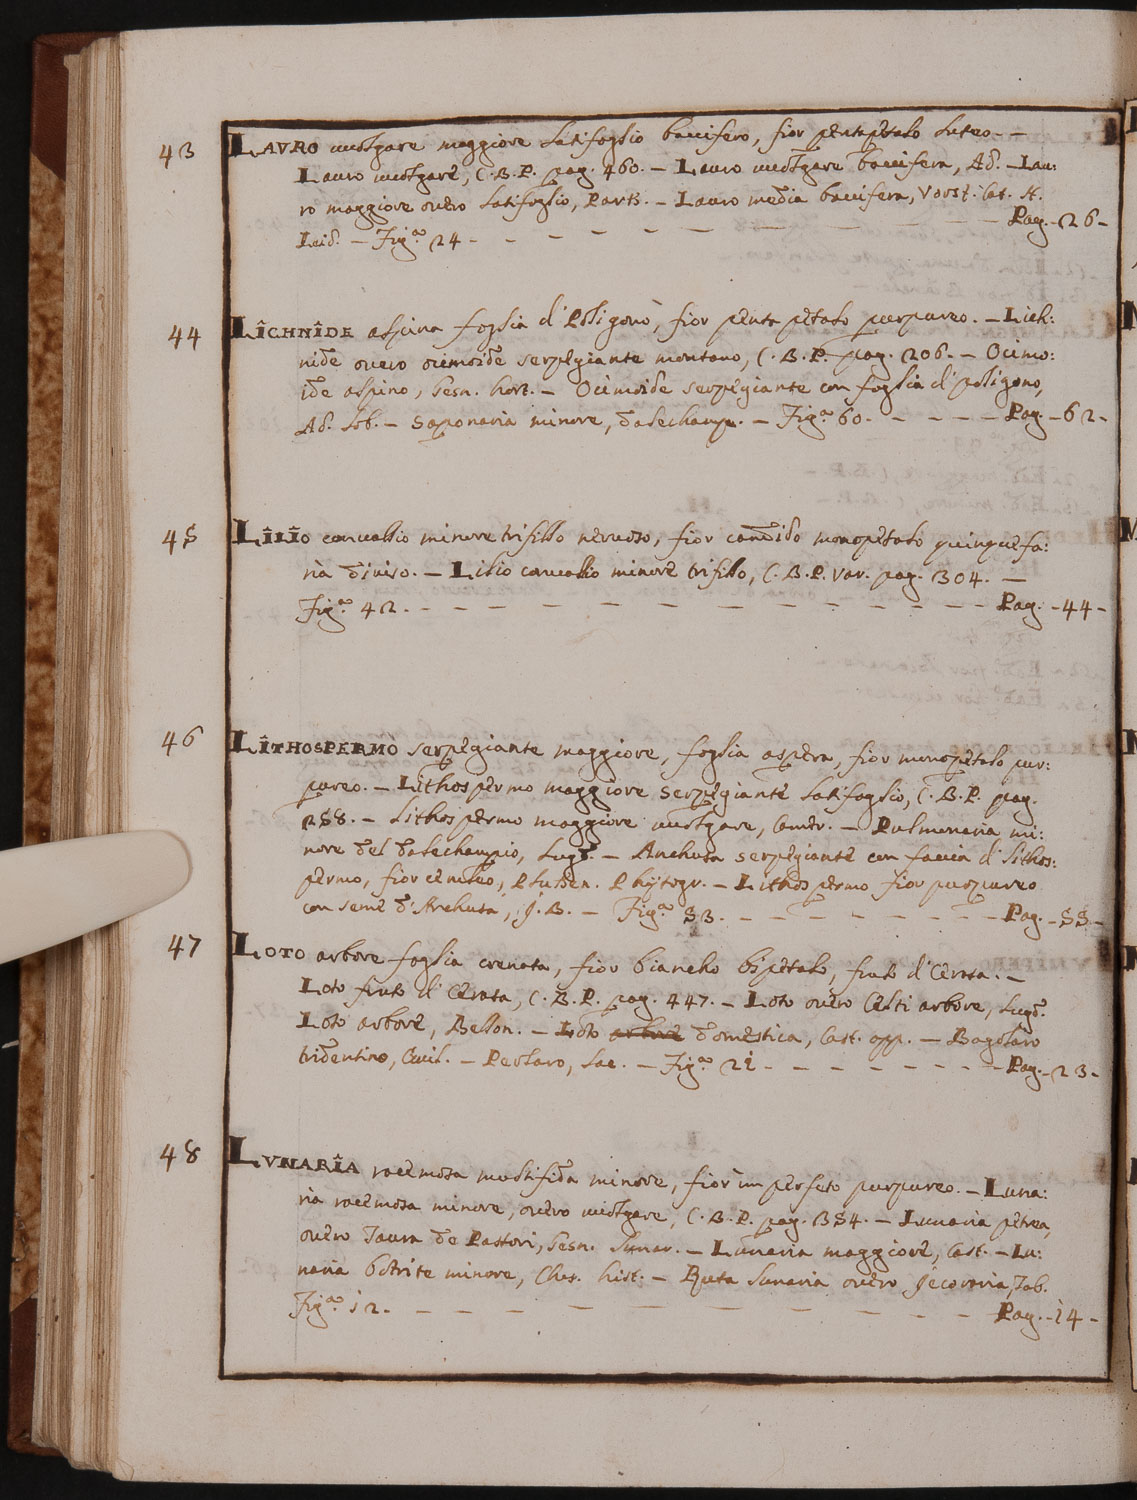 43 LAVRO uulgare maggiore latifoglio baccifero, fior pentapetalo luteo. -
Lauro uulgare, C. B. P. pag. 460. - Lauro uulgare baccifera, Ad. - Lau:
ro maggiore ouero latifoglio, Park. - Lauro media baccifera, Vorst. Cat. H.
Leid. - Fig.ª 24 - Pag. - 26 -
44 LICHNIDE alpina foglia di Poligono, fior pentapetalo purpureo. - Lich:
nide ouero ocimoide serpegiante montano, C. B. P. pag. 206. - Ocimo:
ide alpino, Gesn. hort. - Ocimoide serpegiante con foglia di poligono,
Ad. Lob. - Saponaria minore, Dalechamp. - Fig.ª 60. - Pag. - 62 -
45 LILIO conuallio minore trifillo neruoso, fior candido monopetalo quinquefa:
ria diuiso. - Lilio conuallio minore trifillo, C. B. P. var. pag. 304. -
Fig.ª 42. - Pag. - 44 -
46 LITHOSPERMO serpegiante maggiore, foglia aspera, fior monopetalo pur:
pureo. - Lithospermo maggiore serpegiante latifoglio, C. B. P. pag.
258. - Lithospermo maggiore uulgare, Camer. - Pulmonaria mi:
nore del Dalechampio, Lugd. - Anchusa serpegiante con faccia di Lithos:
permo, fior ceruleo, Pluken. Phÿtogr. - Lithospermo fior purpureo
con seme d'Anchusa, J. B. - Fig.ª 53. - Pag. - 55 -
47 LOTO arbore foglia crenata, fior biancho bipetalo, fruto di Cerasa. -
Loto fruto di Cerasa, C. B. P. pag. 447. - Loto ouero Celti arbore, Lugd.
Loto arbore, Bellon. - Loto arbore domestica, Cast. opp. - Bagolaro
tridentino, Guil. - Perlaro, Lac. - Fig.ª 21 - Pag. - 23 -
48 LVNARIA racemosa multifida minore, fior imperfeto purpureo. - Luna:
ria racemosa minore, ouero uulgare, C. B. P. pag. 354. - Lunaria petrea,
ouero Taura de Pastori, Gesn. Lunar. - Lunaria maggiore, Cast. - Lu:
naria botrite minore, Clus. hist. - Ruta lunaria ouero Jecoraria, Tab.
Fig.ª 12 - Pag. - 14 -